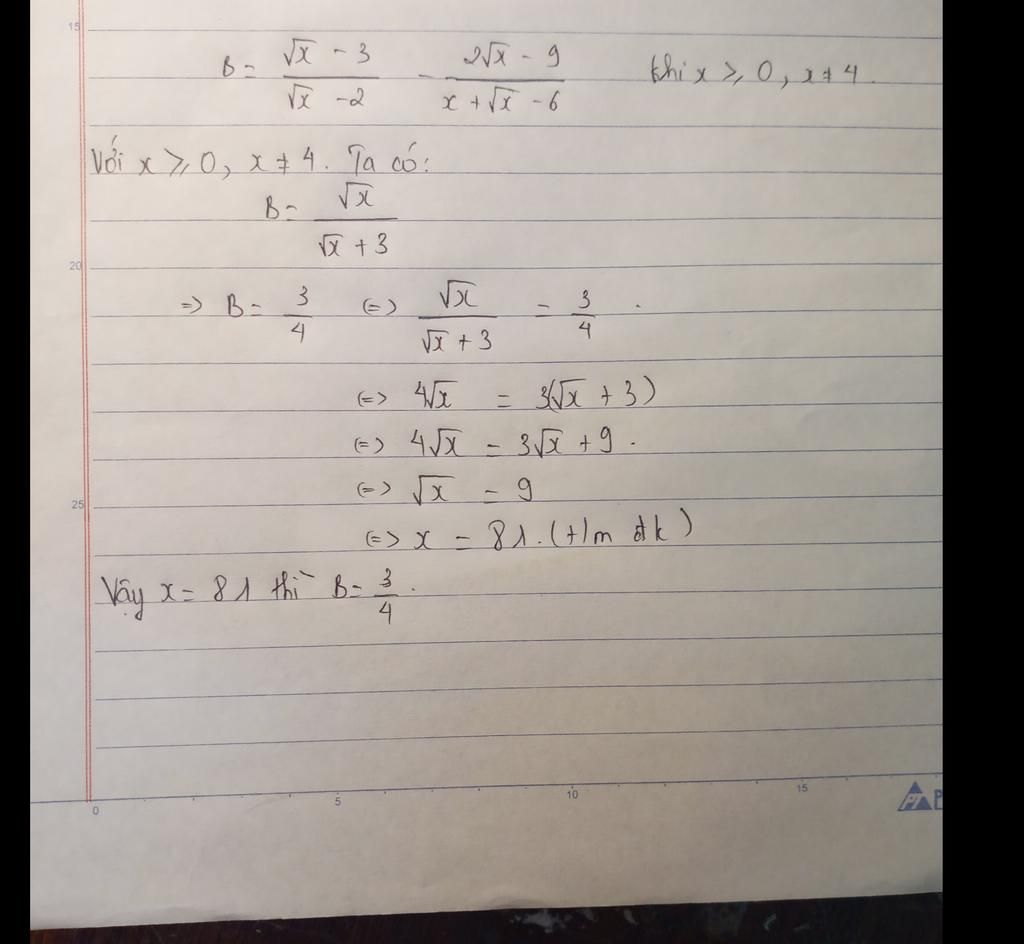 15
B = (√x - 3)/(√x - 2) - (2√x - 9)/(x + √x - 6) khi x ≥ 0, x ≠ 4.
Với x ≥ 0, x ≠ 4. Ta có:
B = √x/(√x + 3)
20
=> B = 3/4 (=) √x/(√x + 3) = 3/4.
(=> 4√x = 3(√x + 3)
(=) 4√x = 3√x + 9.
(=> √x = 9
(=> x = 81. (t/m đk)
25
Vậy x = 81 thì B = 3/4.
0 5 10 15